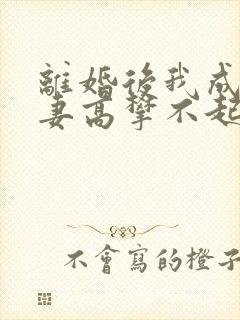 離婚後我成
妻高攀不起
不會寫的橙子